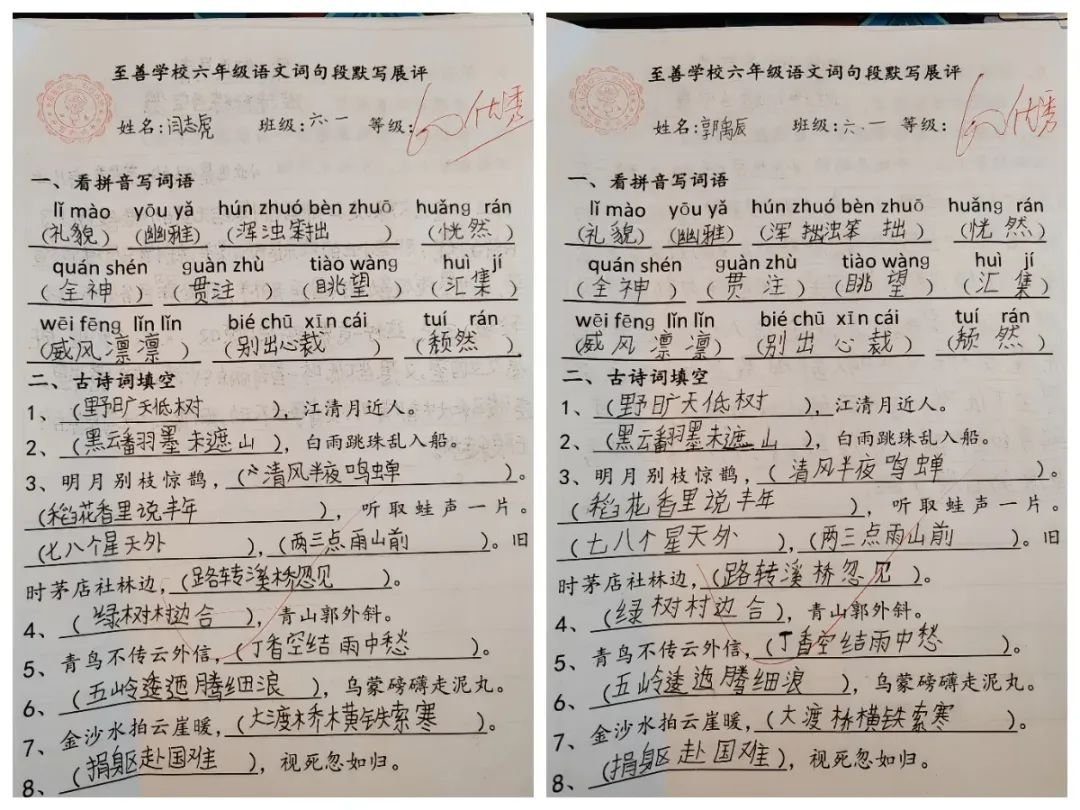 至善学校六年级语文词句段默写展评
姓名:闫志虎 班级:六.一 等级: 优秀
一、看拼音写词语
lǐ mào yōu yǎ hún zhuó bèn zhuō huǎng rán
(礼貌) (幽雅) (浑浊笨拙) (恍然)
quán shén guàn zhù tiào wàng huì jí
(全神) (贯注) (眺望) (汇集)
wēi fēng lǐn lǐn bié chū xīn cái tuí rán
(威风凛凛) (别出心裁) (颓然)
二、古诗词填空
1、(野旷天低树),江清月近人。
2、(黑云翻墨未遮山),白雨跳珠乱入船。
3、明月别枝惊鹊,(清风半夜鸣蝉)。
(稻花香里说丰年),听取蛙声一片。
(七八个星天外),(两三点雨山前)。旧
时茅店社林边,(路转溪桥忽见)。
4、(绿树村边合),青山郭外斜。
5、青鸟不传云外信,(丁香空结雨中愁)。
6、(五岭逶迤腾细浪),乌蒙磅礴走泥丸。
7、金沙水拍云崖暖,(大渡桥横铁索寒)。
8、(捐躯赴国难),视死忽如归。
至善学校六年级语文词句段默写展评
姓名:郭禹辰 班级:六.一 等级: 优秀
一、看拼音写词语
lǐ mào yōu yǎ hún zhuó bèn zhuō huǎng rán
(礼貌) (幽雅) (浑拙浊笨拙) (恍然)
quán shén guàn zhù tiào wàng huì jí
(全神) (贯注) (眺望) (汇集)
wēi fēng lǐn lǐn bié chū xīn cái tuí rán
(威风凛凛) (别出心裁) (颓然)
二、古诗词填空
1、(野旷天低树),江清月近人。
2、(黑云翻墨未遮山),白雨跳珠乱入船。
3、明月别枝惊鹊,(清风半夜鸣蝉)。
(稻花香里说丰年),听取蛙声一片。
(七八个星天外),(两三点雨山前)。旧
时茅店社林边,(路转溪桥忽见)。
4、(绿树村边合),青山郭外斜。
5、青鸟不传云外信,(丁香空结雨中愁)。
6、(五岭逶迤腾细浪),乌蒙磅礴走泥丸。
7、金沙水拍云崖暖,(大渡桥横铁索寒)。
8、(捐躯赴国难),视死忽如归。